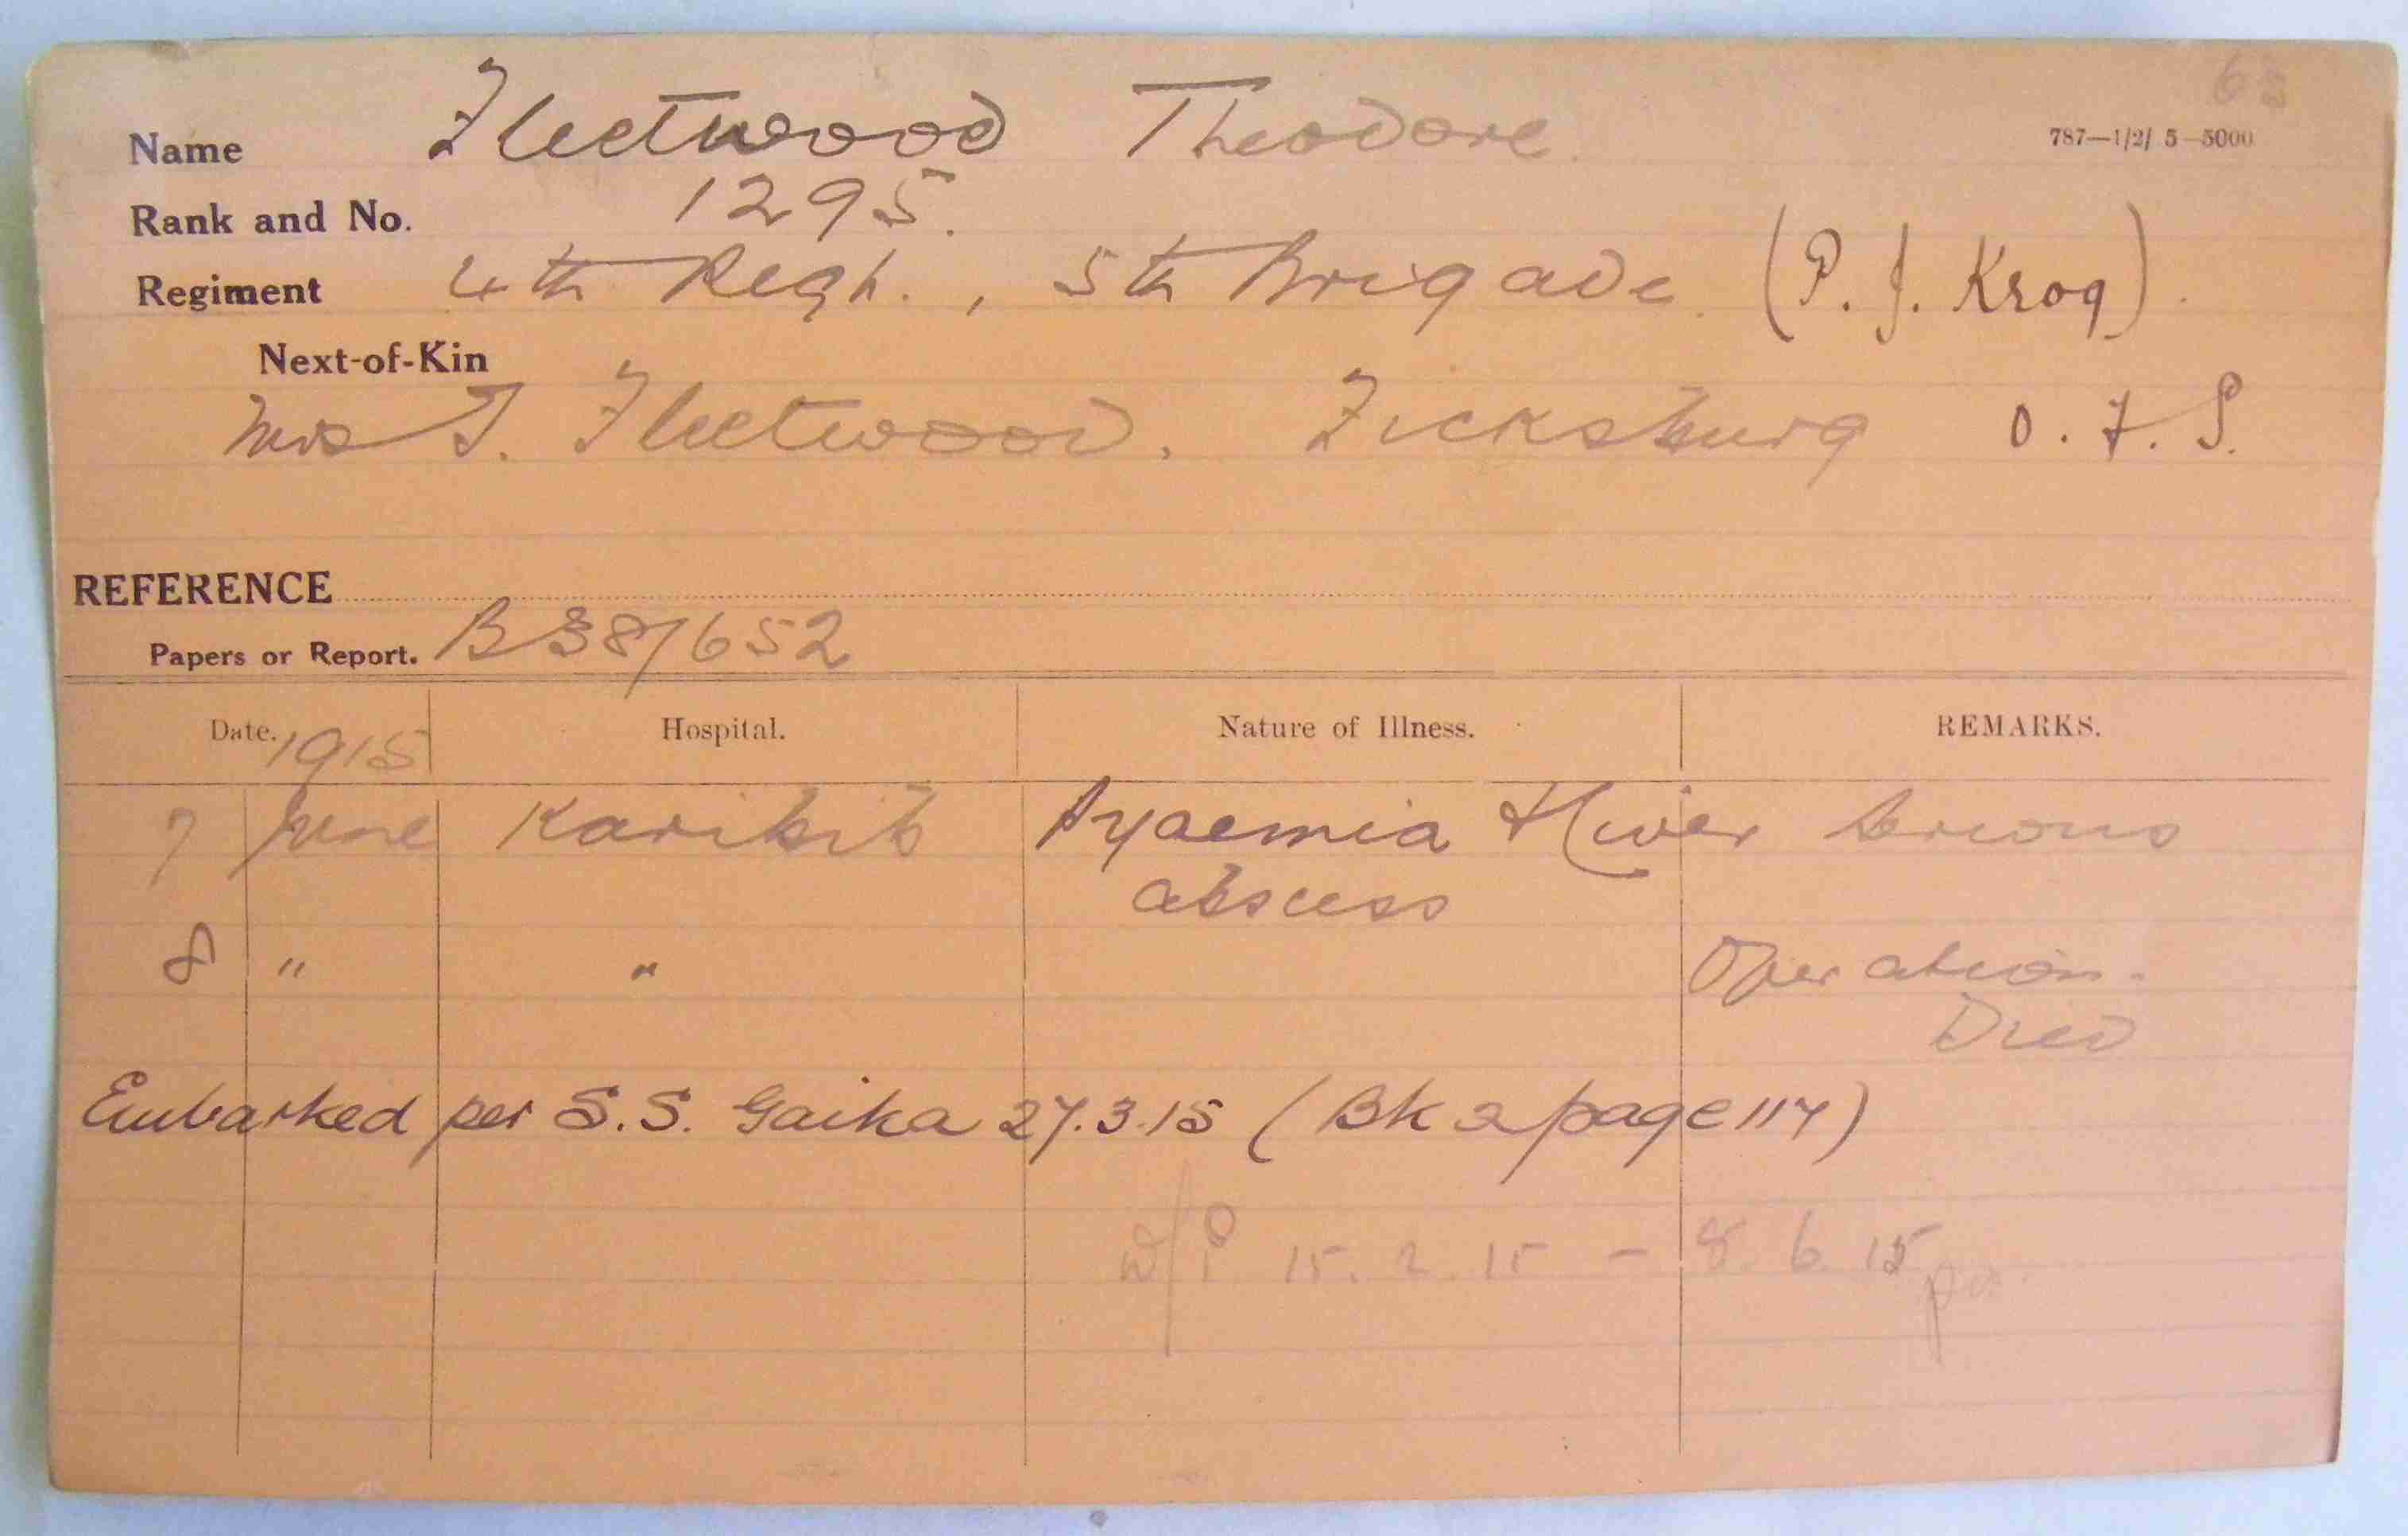 Name Fleetwood Theodore.
787—1/2/ 5—5000
Rank and No. 1295.
Regiment 4th Regt., 5th Brigade. (P. J. Krog).
Next-of-Kin
Mrs T. Fleetwood. Ficksburg O.F.S.
REFERENCE
Papers or Report. B38/652
Date. 1915 Hospital. Nature of Illness. REMARKS.
7 June Karibib Pyaemia & liver Serious
abscess
8 " " Operation.
Died
Embarked per S.S. Gaika 27.3.15 (Bk 2 page 117)
15.2.15 - 8.6.15